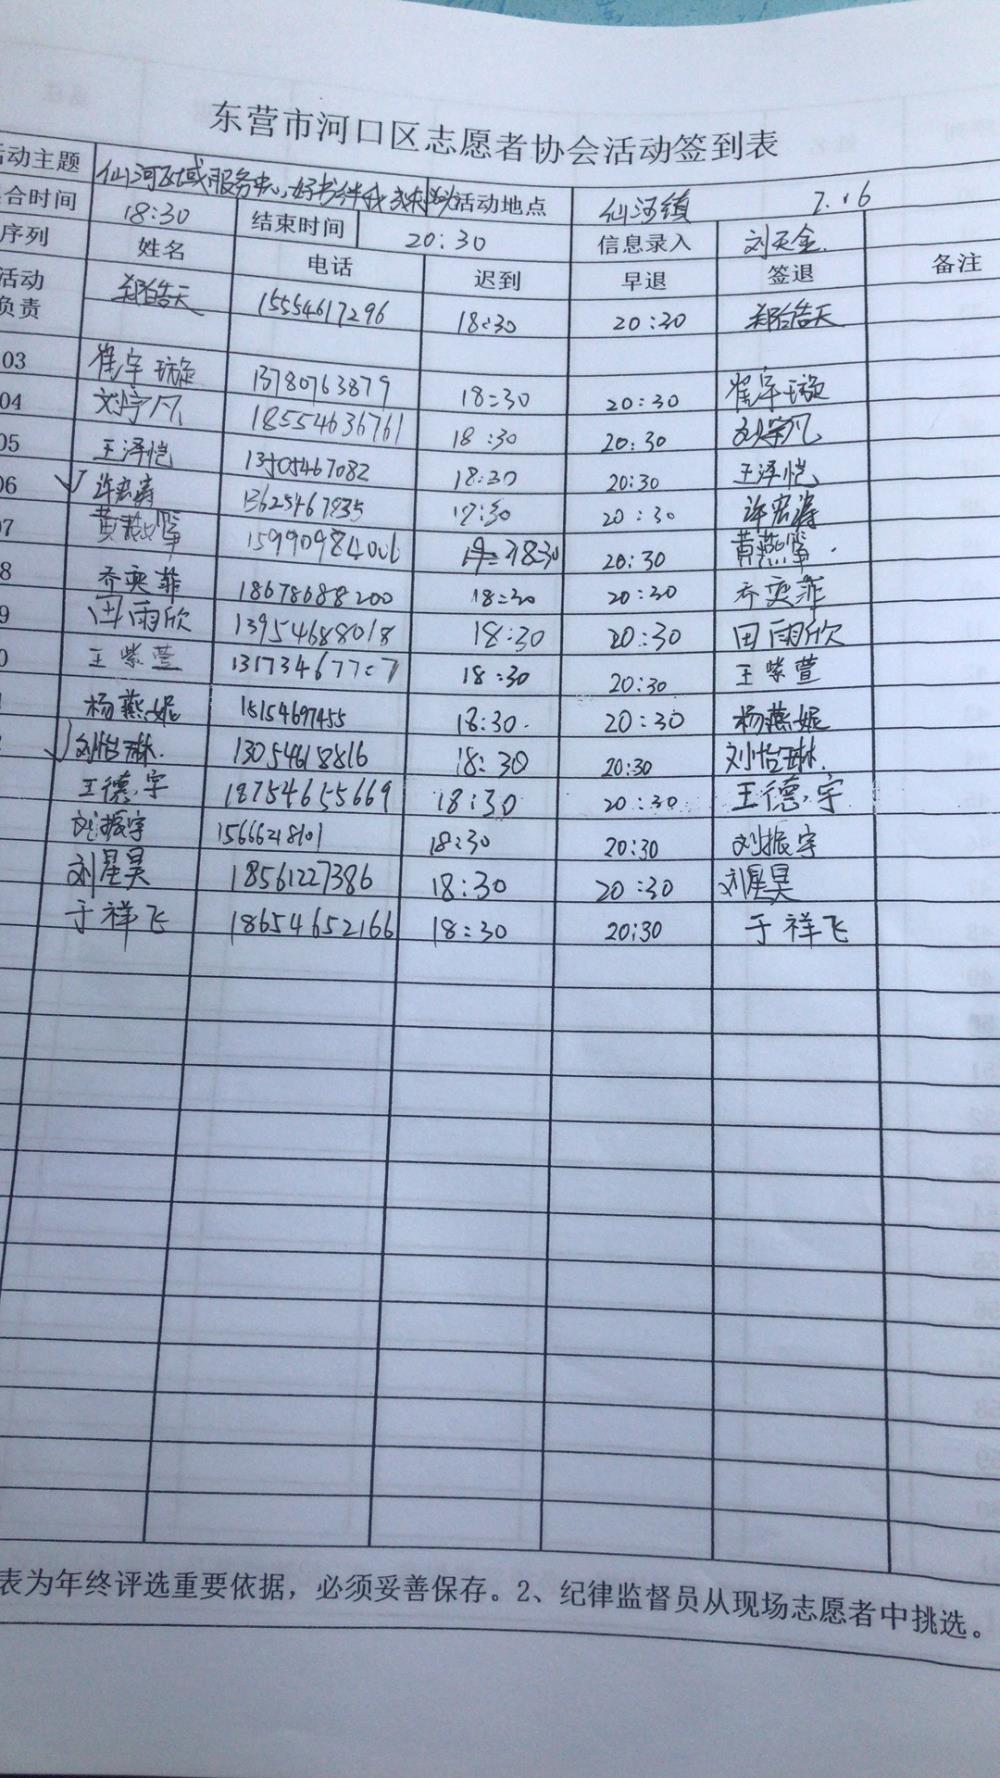 东营市河口区志愿者协会活动签到表
活动主题 仙河区域服务中心,好书伴我 活动地点 仙河镇 7.16
合时间 18:30 结束时间 20:30 信息录入 刘天金
序列 姓名 电话 迟到 早退 签退 备注
活动负责 郑皓天 15554617296 18:30 20:30 郑皓天
03 崔宇璇 13780763879 18:30 20:30 崔宇璇
04 刘宇凡 18554636761 18:30 20:30 刘宇凡
05 王泽恺 13505467082 18:30 20:30 王泽恺
06 许宏涛 13625467835 17:30 20:30 许宏涛
07 黄燕 15990984006 18:30 20:30 黄燕
8 乔奕菲 18678688200 18:30 20:30 乔奕菲
9 田雨欣 13954688018 18:30 20:30 田雨欣
0 王紫萱 18:30 20:30 王紫萱
杨燕妮 15154697455 18:30 20:30 杨燕妮
2 刘怡琳 13054618816 18:30 20:30 刘怡琳
王德宇 18754655669 18:30 20:30 王德宇
刘振宇 1566218101 18:30 20:30 刘振宇
刘星昊 18561227386 18:30 20:30 刘星昊
于祥飞 18654652166 18:30 20:30 于祥飞
表为年终评选重要依据，必须妥善保存。2、纪律监督员从现场志愿者中挑选。